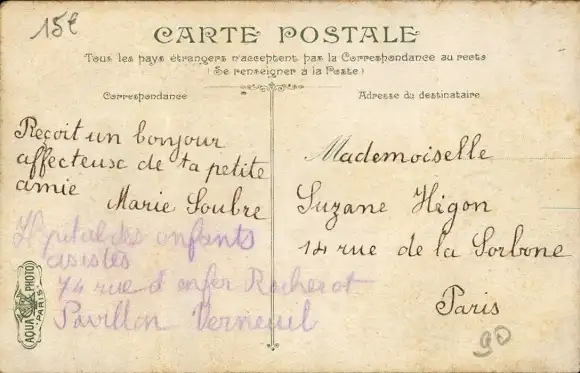 15€
CARTE POSTALE
Tous les pays étrangers n'acceptent pas la Correspondance au recto
(Se renseigner à la Poste)
Correspondance
Adresse du destinataire
Reçoit un bonjour
affecteuse de ta petite
amie
Marie Soubre
Hôpital des enfants
asistés
74 rue d enfer Rocherot
Pavillon Verneuil
AQUA PHOTO
PARIS
Mademoiselle
Suzane Higon
14 rue de la Sorbone
Paris
90